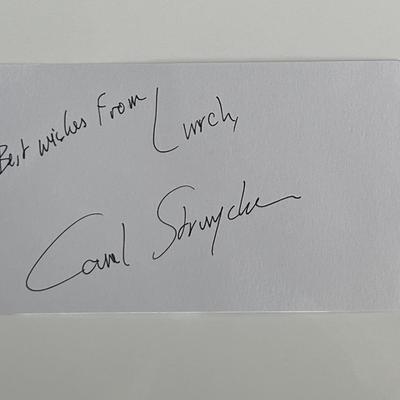 Best wishes From Lurch,
Carel Struycken